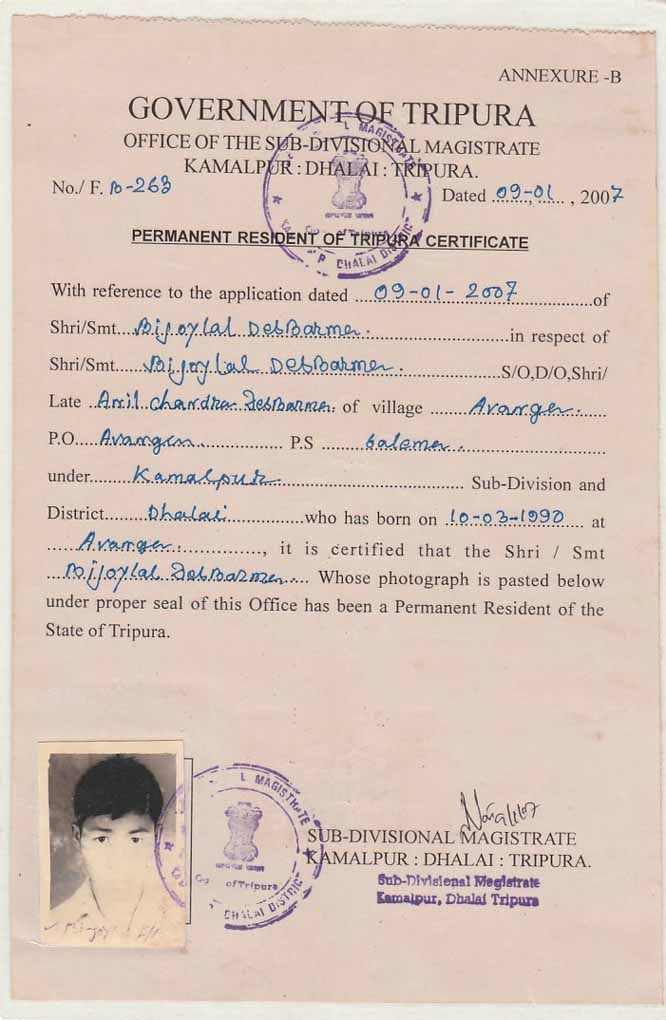 ANNEXURE -B
GOVERNMENT OF TRIPURA
OFFICE OF THE SUB-DIVISIONAL MAGISTRATE
KAMALPUR : DHALAI : TRIPURA.
No./ F. B-263 Dated 09-01, 2007
PERMANENT RESIDENT OF TRIPURA CERTIFICATE
With reference to the application dated 09-01-2007 of
Shri/Smt Bijoylal DebBarma. in respect of
Shri/Smt Bijoylal DebBarma. S/O,D/O,Shri/
Late Anil Chandra DebBarma. of village Avanga.
P.O. Avanga P.S
under Kamalpur Sub-Division and
District Dhalai who has born on 10-03-1990 at
Avanga, it is certified that the Shri / Smt
Bijoylal DebBarma Whose photograph is pasted below
under proper seal of this Office has been a Permanent Resident of the
State of Tripura.
L MAGISTRATE
DHALAI DISTRICT
of Tripura
SUB-DIVISIONAL MAGISTRATE
KAMALPUR : DHALAI : TRIPURA.
Sub-Divisional Magistrate
Kamalpur, Dhalai Tripura